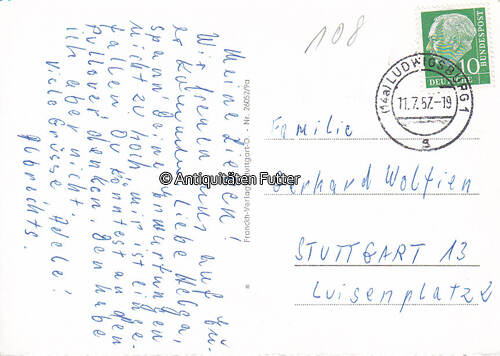 Meine Lieben!
Wir freuen uns auf Eu-
er Kommen. Liebe Helga,
spann Deine Erwartungen
nicht zu hoch. Mir ist eingen
fallen Du könntest an den
Pullover denken. Den habe
ich aber nicht.
Viele Grüsse, Adele!
Albrechts.
Franckh-Verlag, Stuttgart-O. - Nr. 26052/9a
108
DEUTSCHE BUNDESPOST
10
(14a) LUDWIGSBURG 1
11.7.57.-19
g
Familie
Gerhard Wolfien
STUTTGART 13
Luisenplatz 2
© Antiquitäten Futter